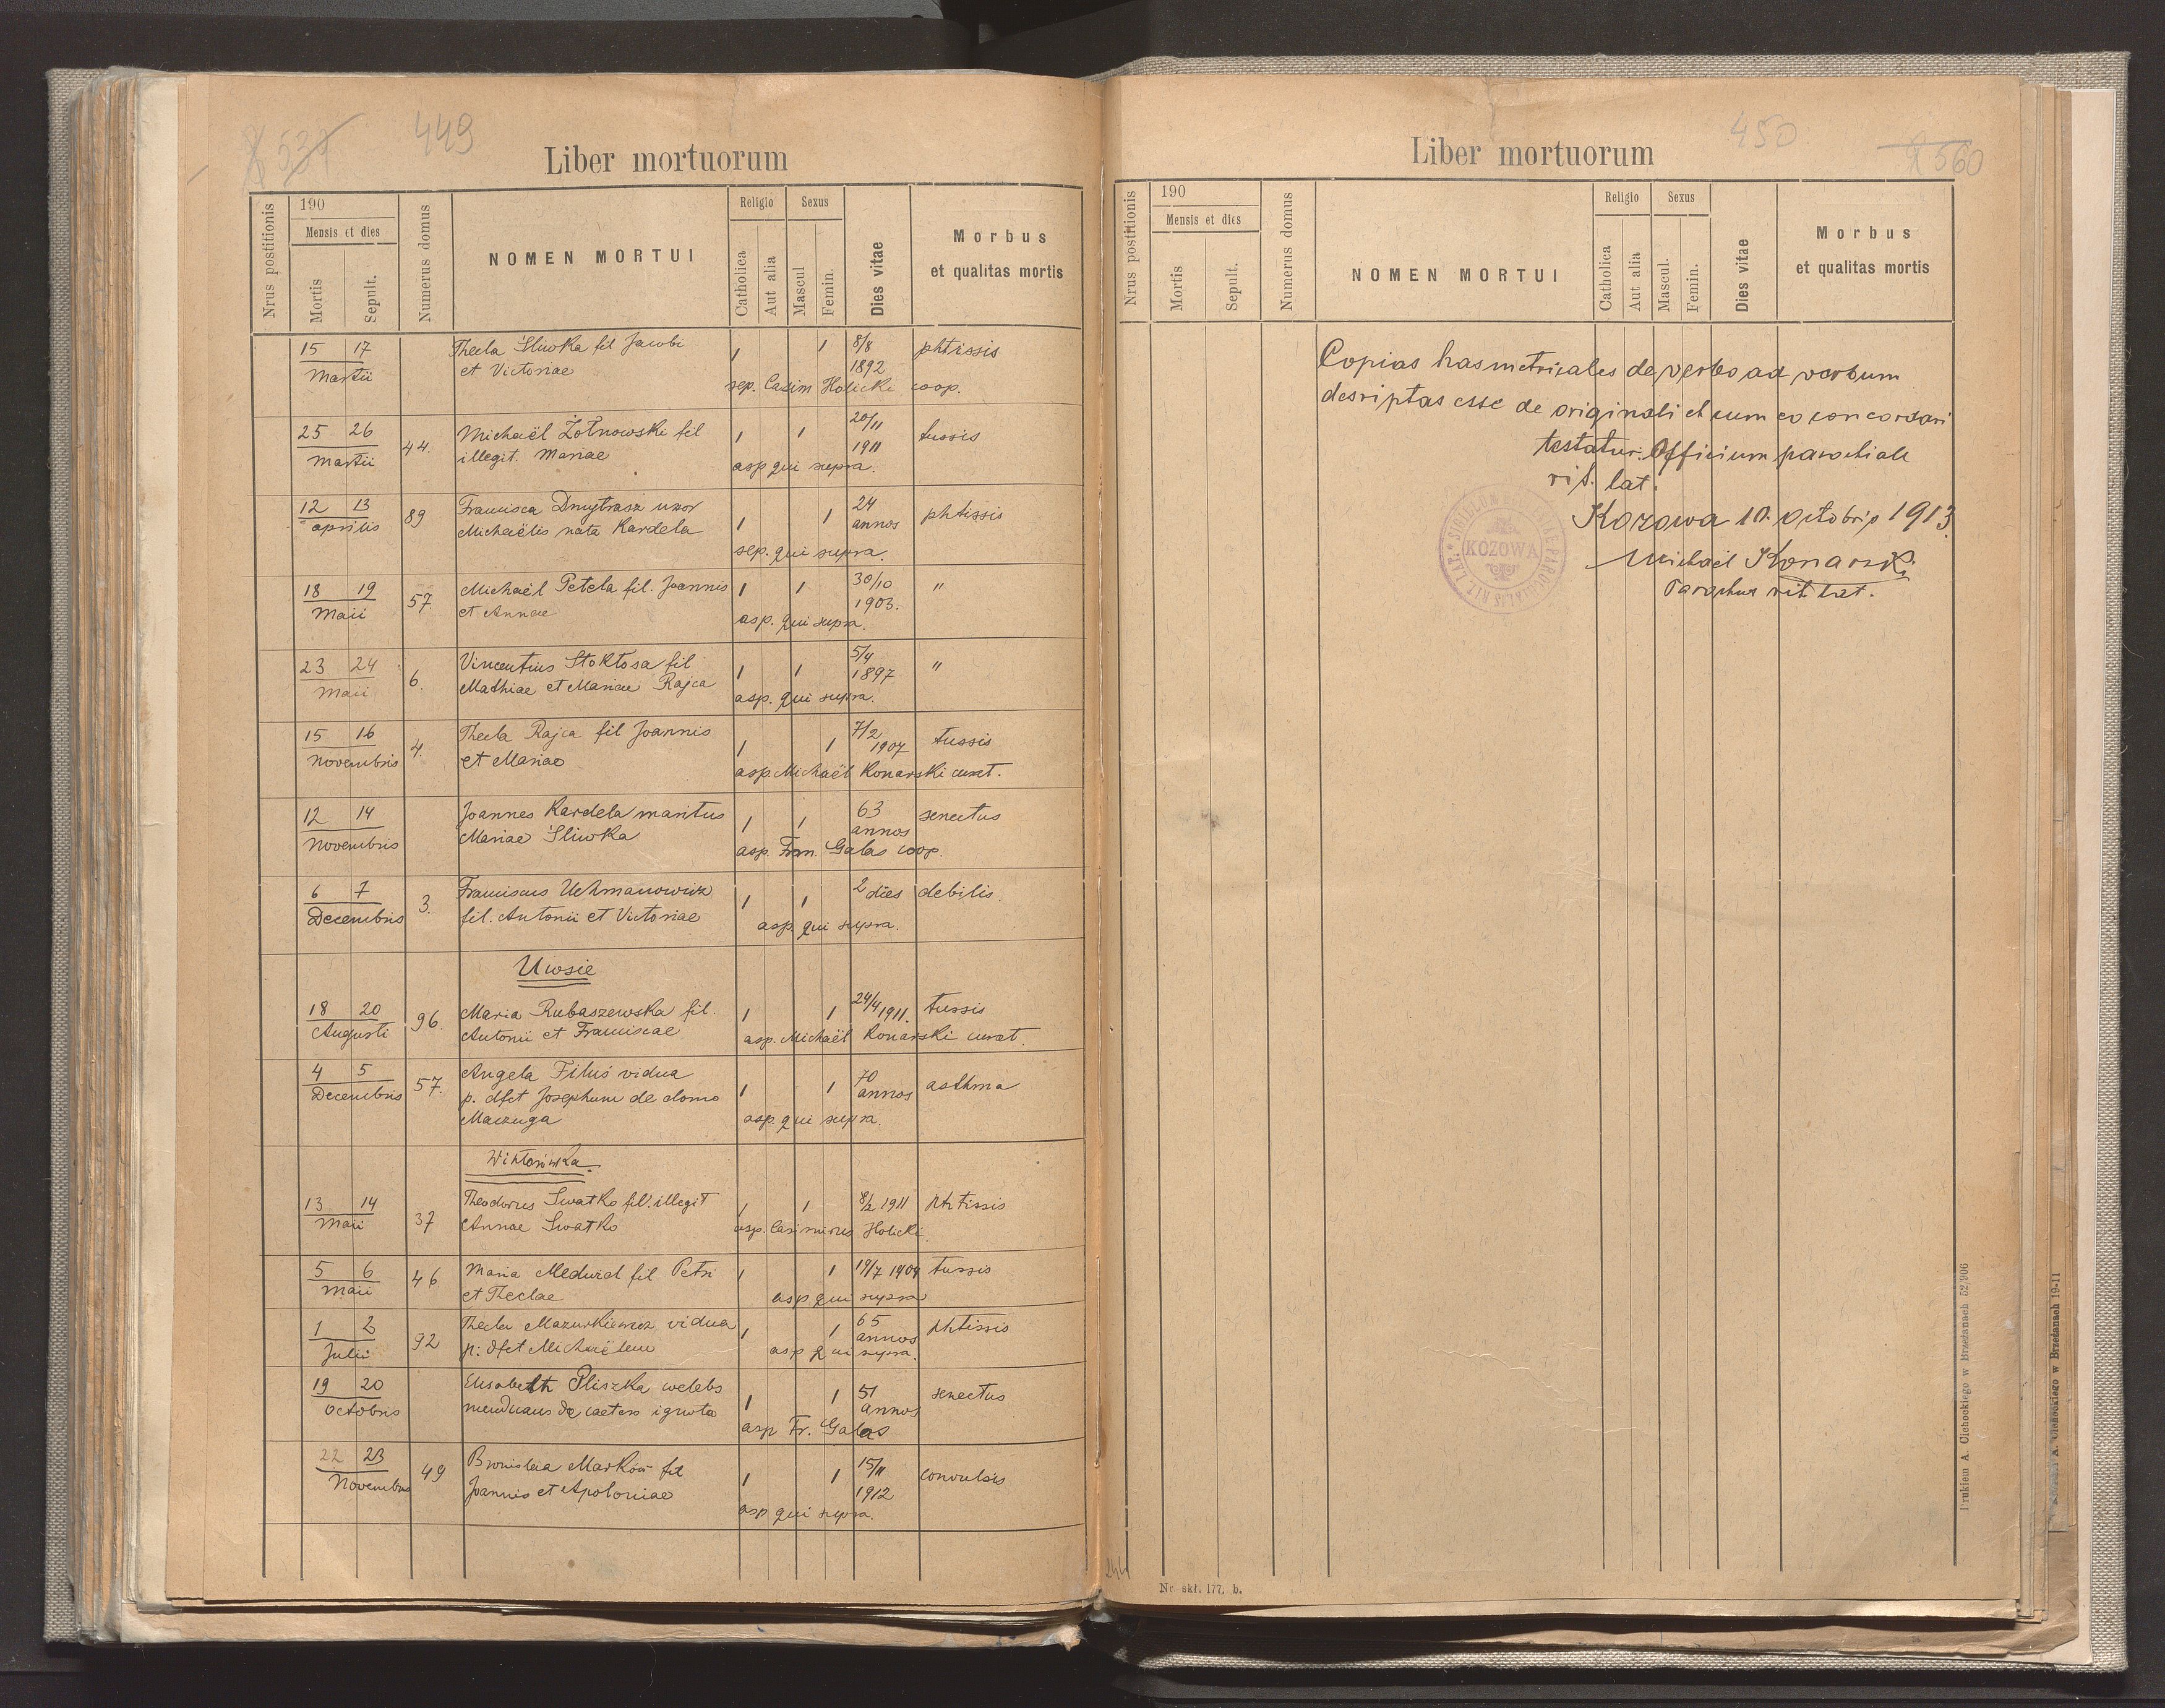 449
Liber mortuorum
Nrus postitionis
190
Mensis et dies
Mortis
Sepult.
Numerus domus
NOMEN MORTUI
Religio
Catholica
Aut alia
Sexus
Mascul
Femin.
Dies vitae
Morbus
et qualitas mortis
15 17
Martii
Thecla Śliwka fil Jacobi
et Victoriae
1 1
8/8
1892
phtissis
sep. Casim Holicki coop.
25 26
Martii
44.
Michaël Żołnowski fil
illegit. Mariae
1 1
20/11
1911
tussis
asp qui supra.
12 13
aprilis
89
Francisca Dmytrasz uxor
Michaëlis nata Kardela
1 1
24
annos
phtissis
sep. qui supra.
18 19
Maii
57
Michaël Petela fil. Joannis
et Annae
1 1
30/10
1903.
"
asp. qui supra.
23 24
Maii
6.
Vincentius Stokłosa fil
Mathiae et Mariae Rajca
1 1
5/4
1897
"
asp. qui supra.
15 16
Novembris
4.
Thecla Rajca fil Joannis
et Mariae
1 1
7/2
1907
tussis
asp Michaël Konarski curat.
12 14
Novembris
Joannes Kardela maritus
Mariae Śliwka
1 1
63
annos
senectus
asp. Fran. Galas coop.
6 7
Decembris
3.
Franciscus Uchmanowicz
fil. Antonii et Victoriae
1 1
2 dies
debilis.
asp. qui supra.
Uwsie
18 20
Augusti
96.
Maria Rubaszewska fil.
Antonii et Franciscae
1 1
24/4 1911.
tussis
asp. Michaël Konarski curat.
4 5
Decembris
57.
Angela Filuś vidua
p. dfct Josephum de domo
Maczuga
1 1
70
annos
asthma
asp. qui supra.
Wiktorówka
13 14
Maii
37
Theodorus Swatko fil. illegit
Annae Swatko
1 1
8/2 1911
phtissis
asp. Casimirus Holicki.
5 6
Maii
46
Maria Medwid fil Petri
et Theclae
1 1
19/7 1909
tussis
asp qui supra
1 2
Julii
92
Thecla Mazurkiewicz vidua
p: dfct Michaëlem
1 1
65
annos
phtissis
asp qui supra.
19 20
Octobris
Elisabeth Pliszka
de caetero ignota
1 1
51
annos
senectus
asp Fr. Galas
22 23
Novembris
49
Bronislaa Marków fil
Joannis et Apoloniae
1 1
15/11
1912
convulsis
asp qui supra.
450
560
Liber mortuorum
Nrus postitionis
190
Mensis et dies
Mortis
Sepult.
Numerus domus
NOMEN MORTUI
Religio
Catholica
Aut alia
Sexus
Mascul.
Femin.
Dies vitae
Morbus
et qualitas mortis
Copias has metricales de verbo ad verbum
descriptas esse de originali et cum eo concordari
testatur. Officium parochiale
rit. lat.
Kozowa 10. octobris 1913
Michaël Konarski
Parochus rit lat.
KOZOWA
244
Nr. skł. 177. b.
Drukiem A. Cichockiego w Brzeżanach 52,906
A. Cichockiego w Brzeżanach 19-11